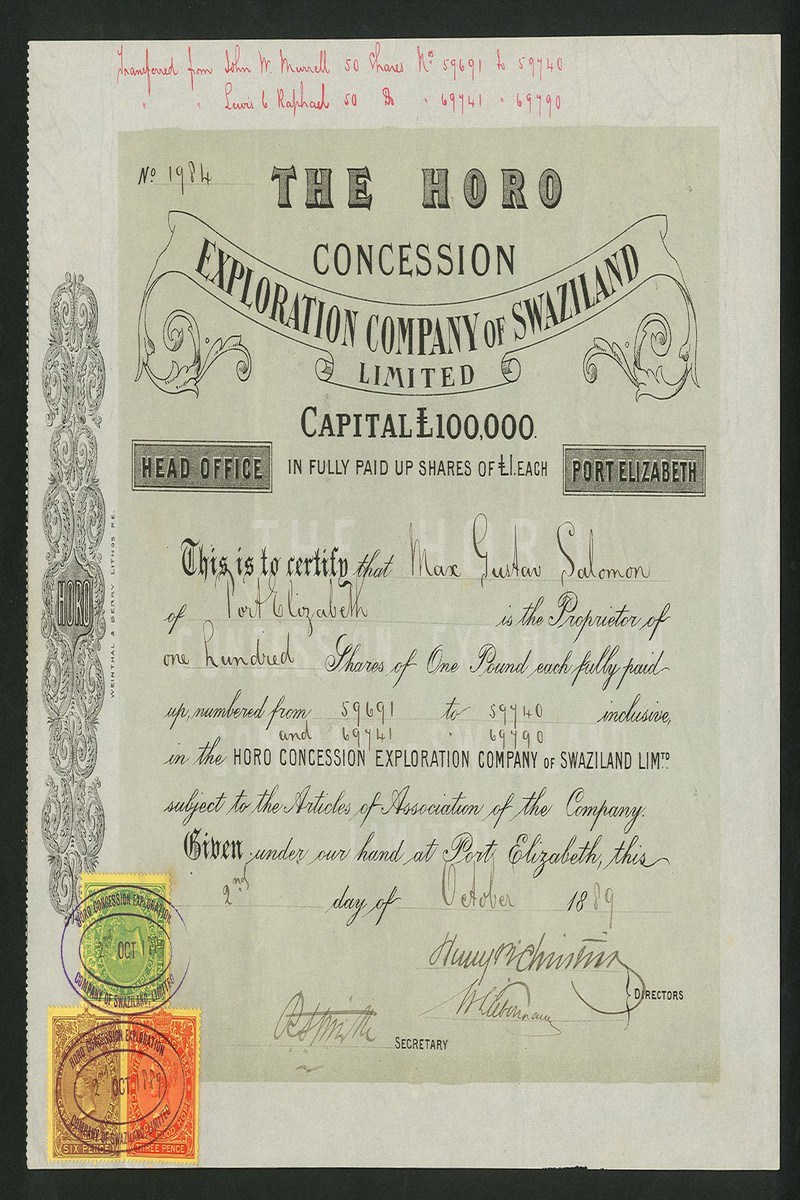 Transferred from John W. Murrell 50 Shares Nos 59691 to 59740
" " Lewis C. Raphael 50 Do " 69741 " 69790
No 1984
THE HORO
CONCESSION
EXPLORATION COMPANY OF SWAZILAND
LIMITED
CAPITAL £100,000.
HEAD OFFICE
IN FULLY PAID UP SHARES OF £1. EACH
PORT ELIZABETH
This is to certify that Max Gustav Salomon
of Port Elizabeth is the Proprietor of
one hundred Shares of One Pound each fully paid
up, numbered from 59691 to 59740 inclusive,
and 69741 " 69790
in the HORO CONCESSION EXPLORATION COMPANY OF SWAZILAND LIMTD
subject to the Articles of Association of the Company.
Given under our hand at Port Elizabeth, this
2nd day of October 1889
DIRECTORS
SECRETARY
HORO
WEINTHAL & BERRY LITHOS P.E.
HORO CONCESSION EXPLORATION
2 OCT
COMPANY OF SWAZILAND, LIMITED
HORO CONCESSION EXPLORATION
2 OCT 1889
COMPANY OF SWAZILAND, LIMITED
SIX PENCE
THREE PENCE